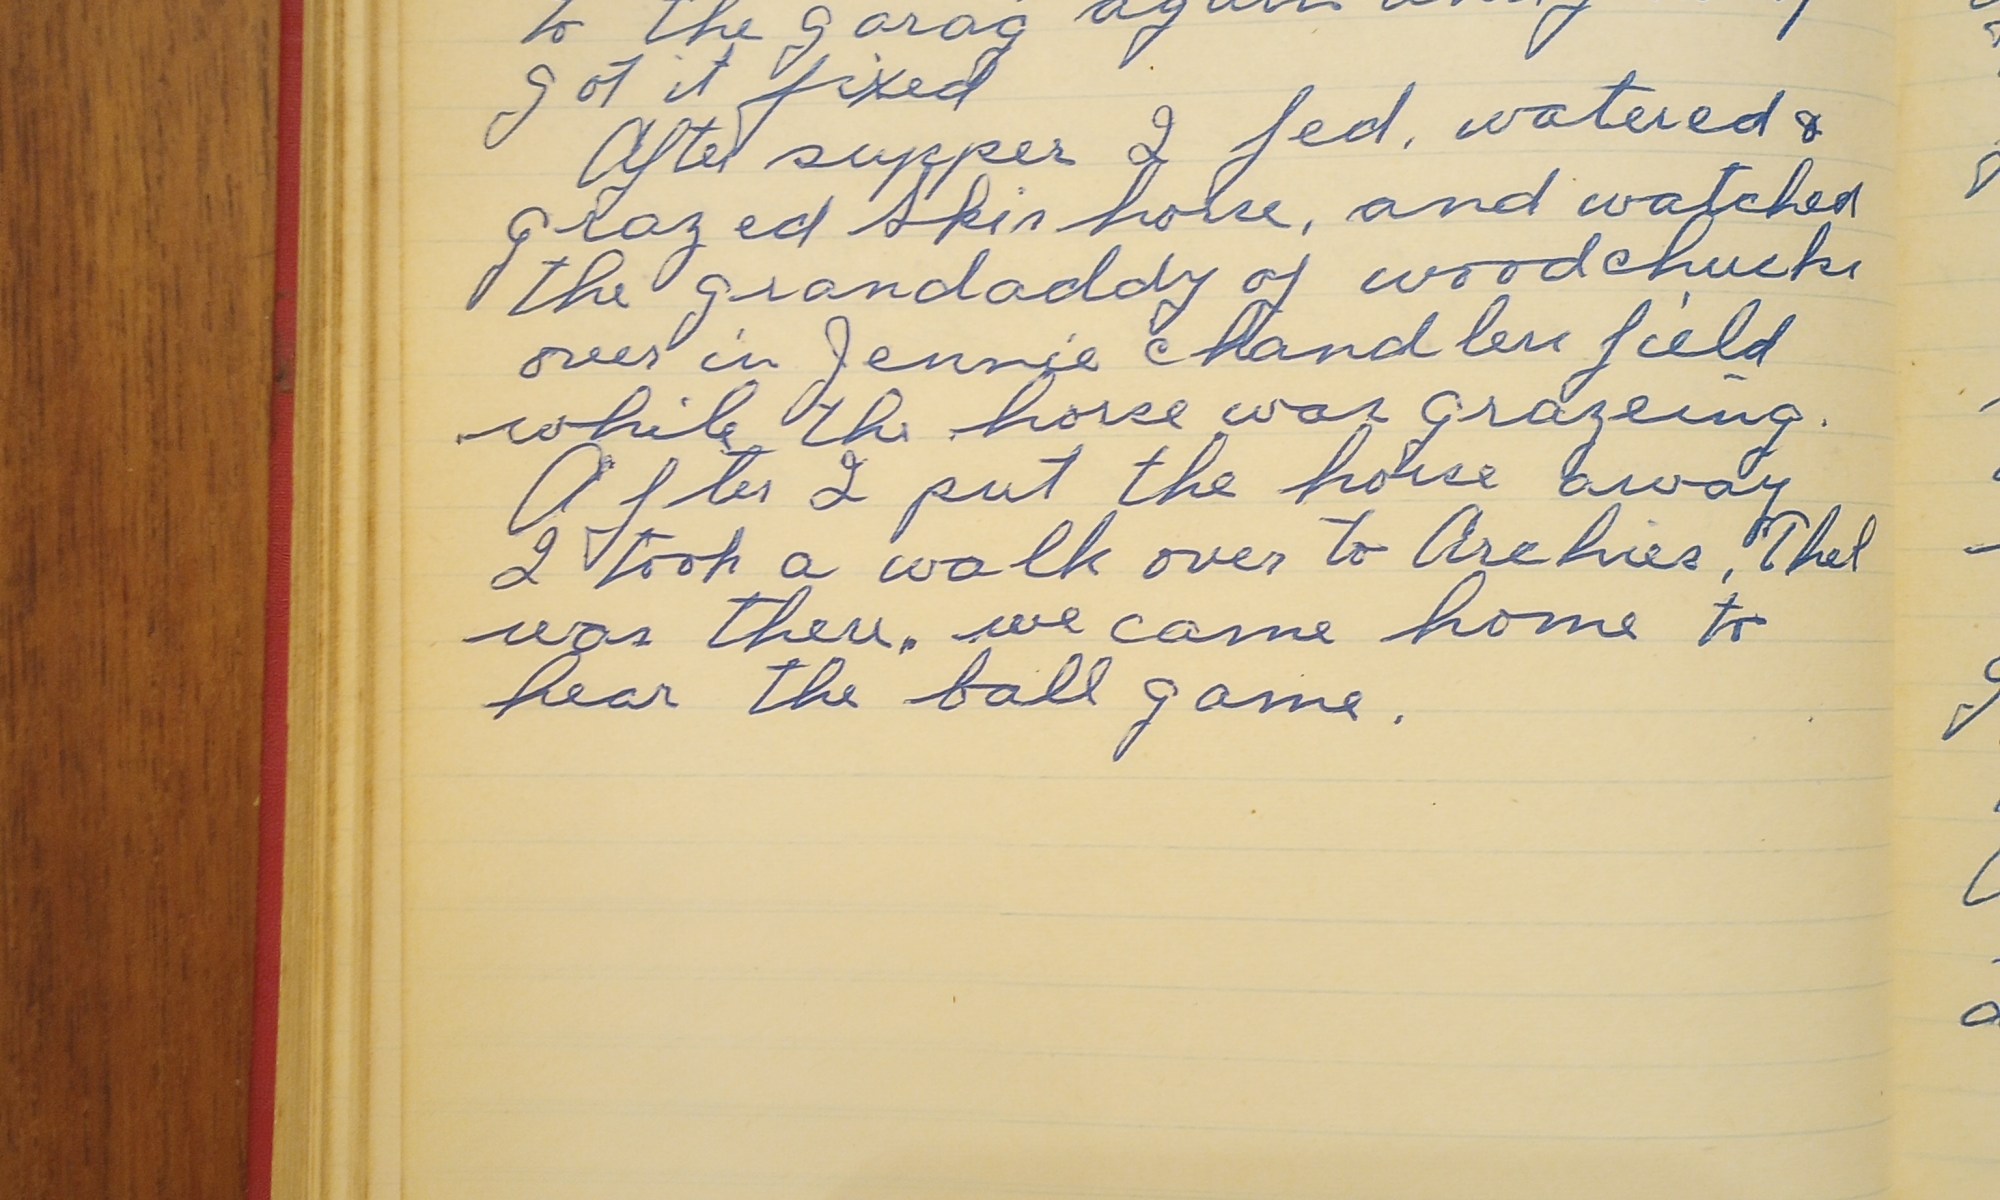 to the garag again
got it fixed
After supper I fed, watered &
grazed Skis horse, and watched
the grandaddy of woodchucks
over in Jennie Chandlers field
while the horse was grazeing.
After I put the horse away
I took a walk over to Archies, Thel
was there. we came home to
hear the ball game.